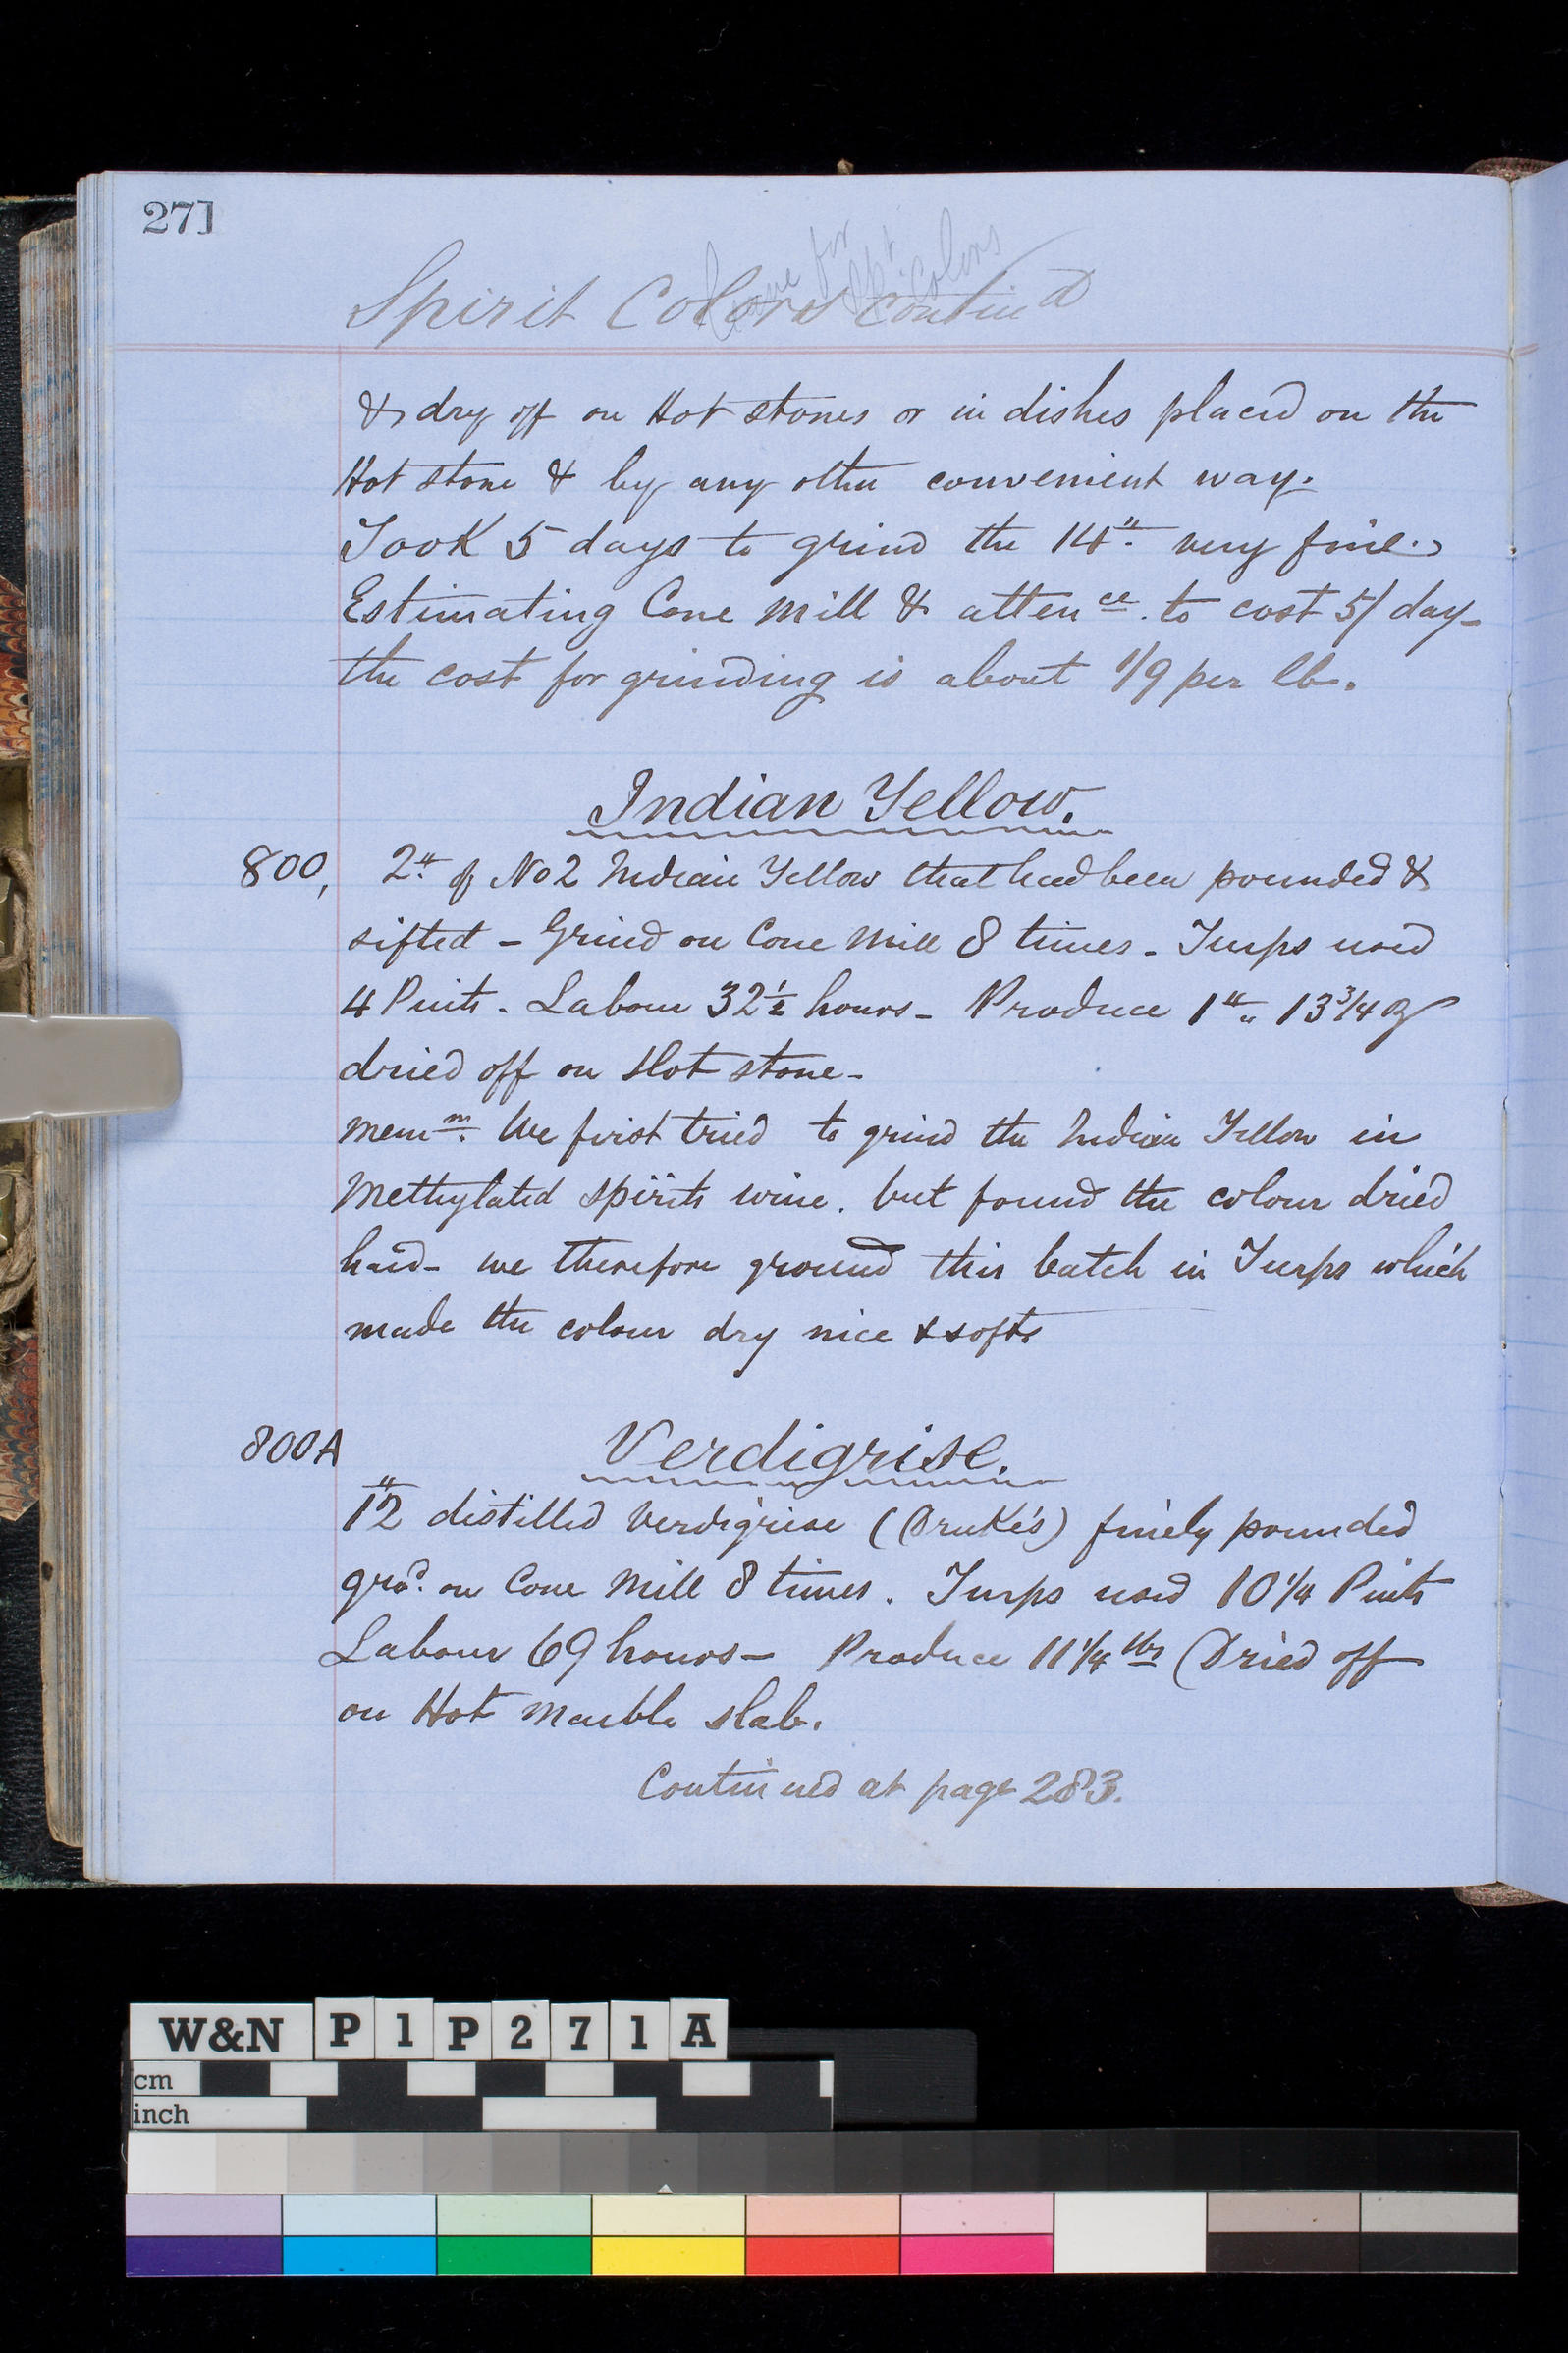 271
leave for
Spt. Colors
Spirit Colors Contin'd
& dry off on Hot stones or in dishes placed on the
Hot stone & by any other convenient way.
Took 5 days to grind the 14" very fine.
Estimating Cone Mill & atten^ce. to cost 5/ day -
the cost for grinding is about 1/9 per lb.
Indian Yellow.
800, 2" of No 2 Indian Yellow that had been pounded &
sifted - Grind on Cone Mill 8 times - Turps used
4 Pints - Labour 32 1/2 hours - Produce 1" " 13 3/4 oz
dried off on Hot stone -
Mem^m. We first tried to grind the Indian Yellow in
Methylated spirits wine. but found the colour dried
hard - we therefore ground this batch in Turps which
made the colour dry nice & soft
800A Verdigrise.
12" distilled Verdigrise (Druke's) finely pounded
gro^d. on Cone Mill 8 times. Turps used 10 1/4 Pints
Labour 69 hours - Produce 11 1/4 lbs (Dried off
on Hot Marble slab.
Continued at page 283.
W&N P1P271A
cm
inch